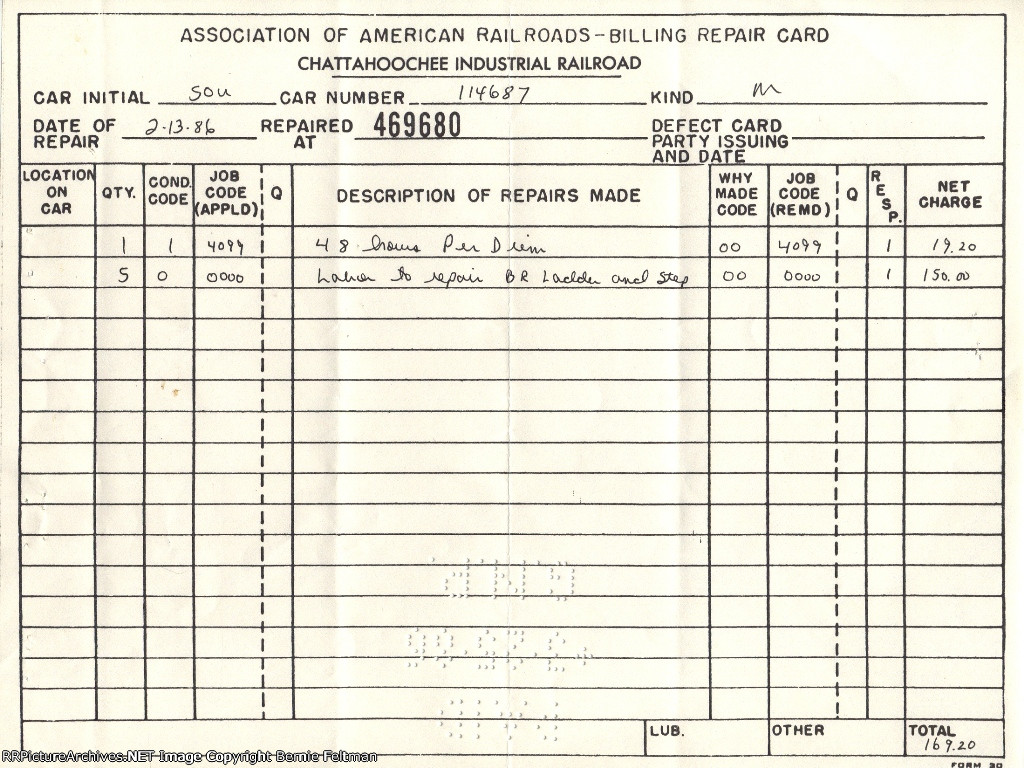 ASSOCIATION OF AMERICAN RAILROADS-BILLING REPAIR CARD
CHATTAHOOCHEE INDUSTRIAL RAILROAD
CAR INITIAL SOU CAR NUMBER 114687 KIND M
DATE OF REPAIR 2-13-86 REPAIRED AT 469680 DEFECT CARD PARTY ISSUING AND DATE
LOCATION ON CAR QTY. COND. CODE JOB CODE (APPLD) Q DESCRIPTION OF REPAIRS MADE WHY MADE CODE JOB CODE (REMD) Q RESP. NET CHARGE
1 1 4099 48 hours Per Driem 00 4099 1 19.20
5 0 0000 Labor to repair BR Ladder and Step 00 0000 1 150.00
LUB. OTHER TOTAL
169.20
RRPictureArchives.NET Image Copyright Bernie Feltman
FORM 30